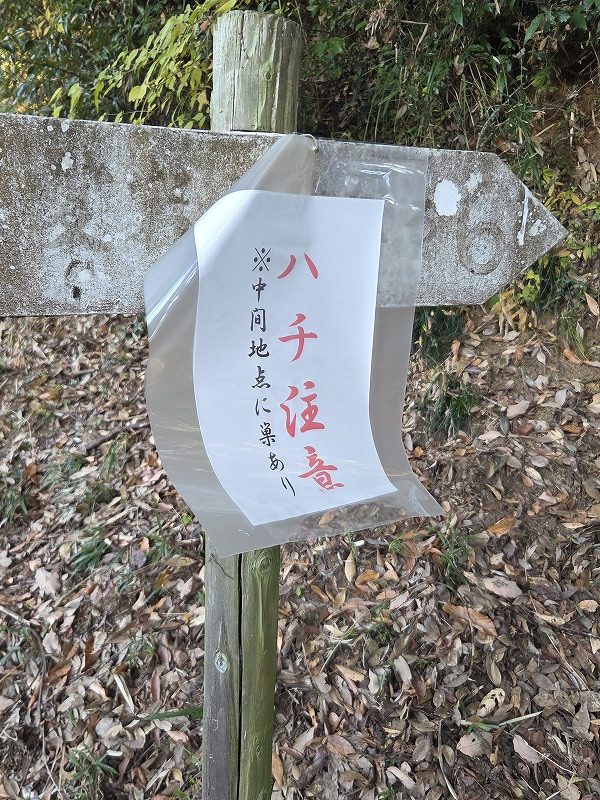 ハチ注意
※中間地点に巣あり